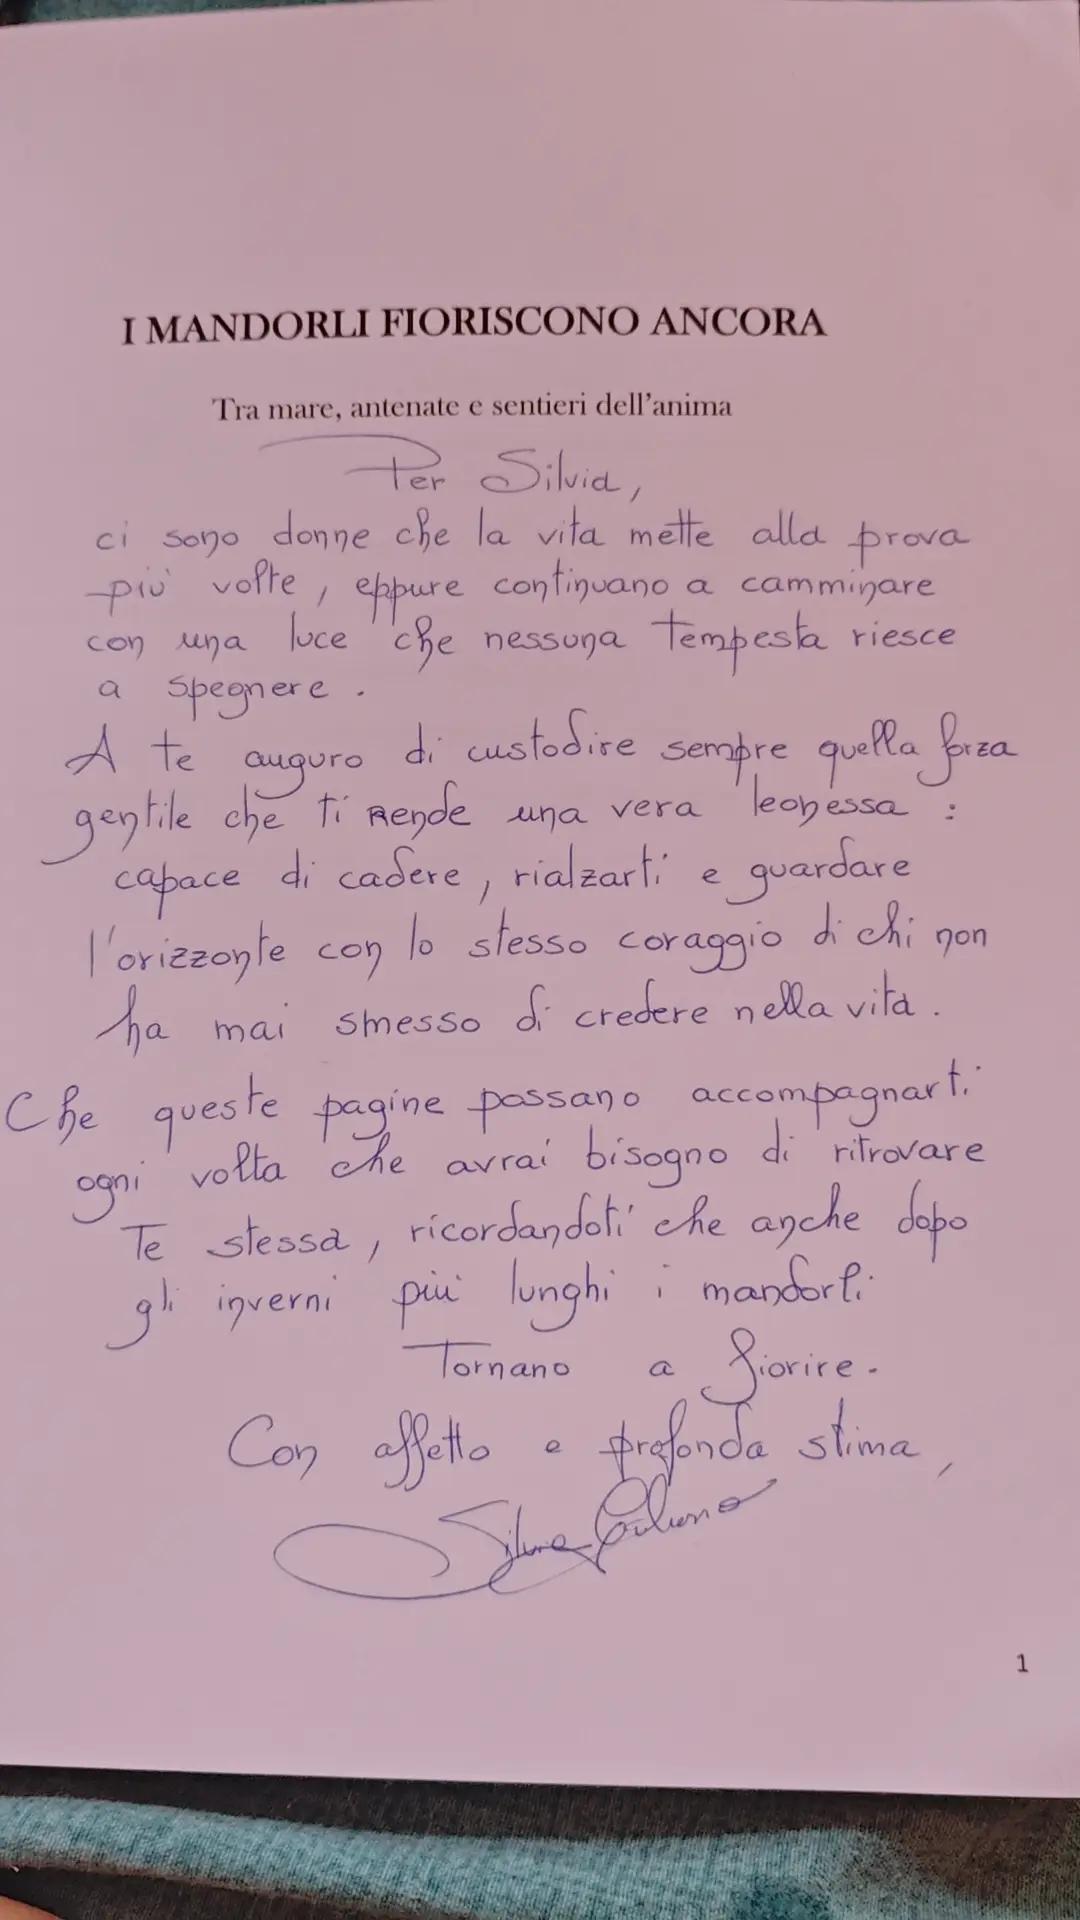 I MANDORLI FIORISCONO ANCORA
Tra mare, antenate e sentieri dell'anima
Per Silvia,
ci sono donne che la vita mette alla prova
più volte, eppure continuano a camminare
con una luce che nessuna Tempesta riesce
a spegnere.
A te auguro di custodire sempre quella forza
gentile che ti rende una vera leonessa:
capace di cadere, rialzarti e guardare
l'orizzonte con lo stesso coraggio di chi non
ha mai smesso di credere nella vita.
Che queste pagine possano accompagnarti
ogni volta che avrai bisogno di ritrovare
Te stessa, ricordandoti che anche dopo
gli inverni più lunghi i mandorli
Tornano a fiorire.
Con affetto e profonda stima,
1